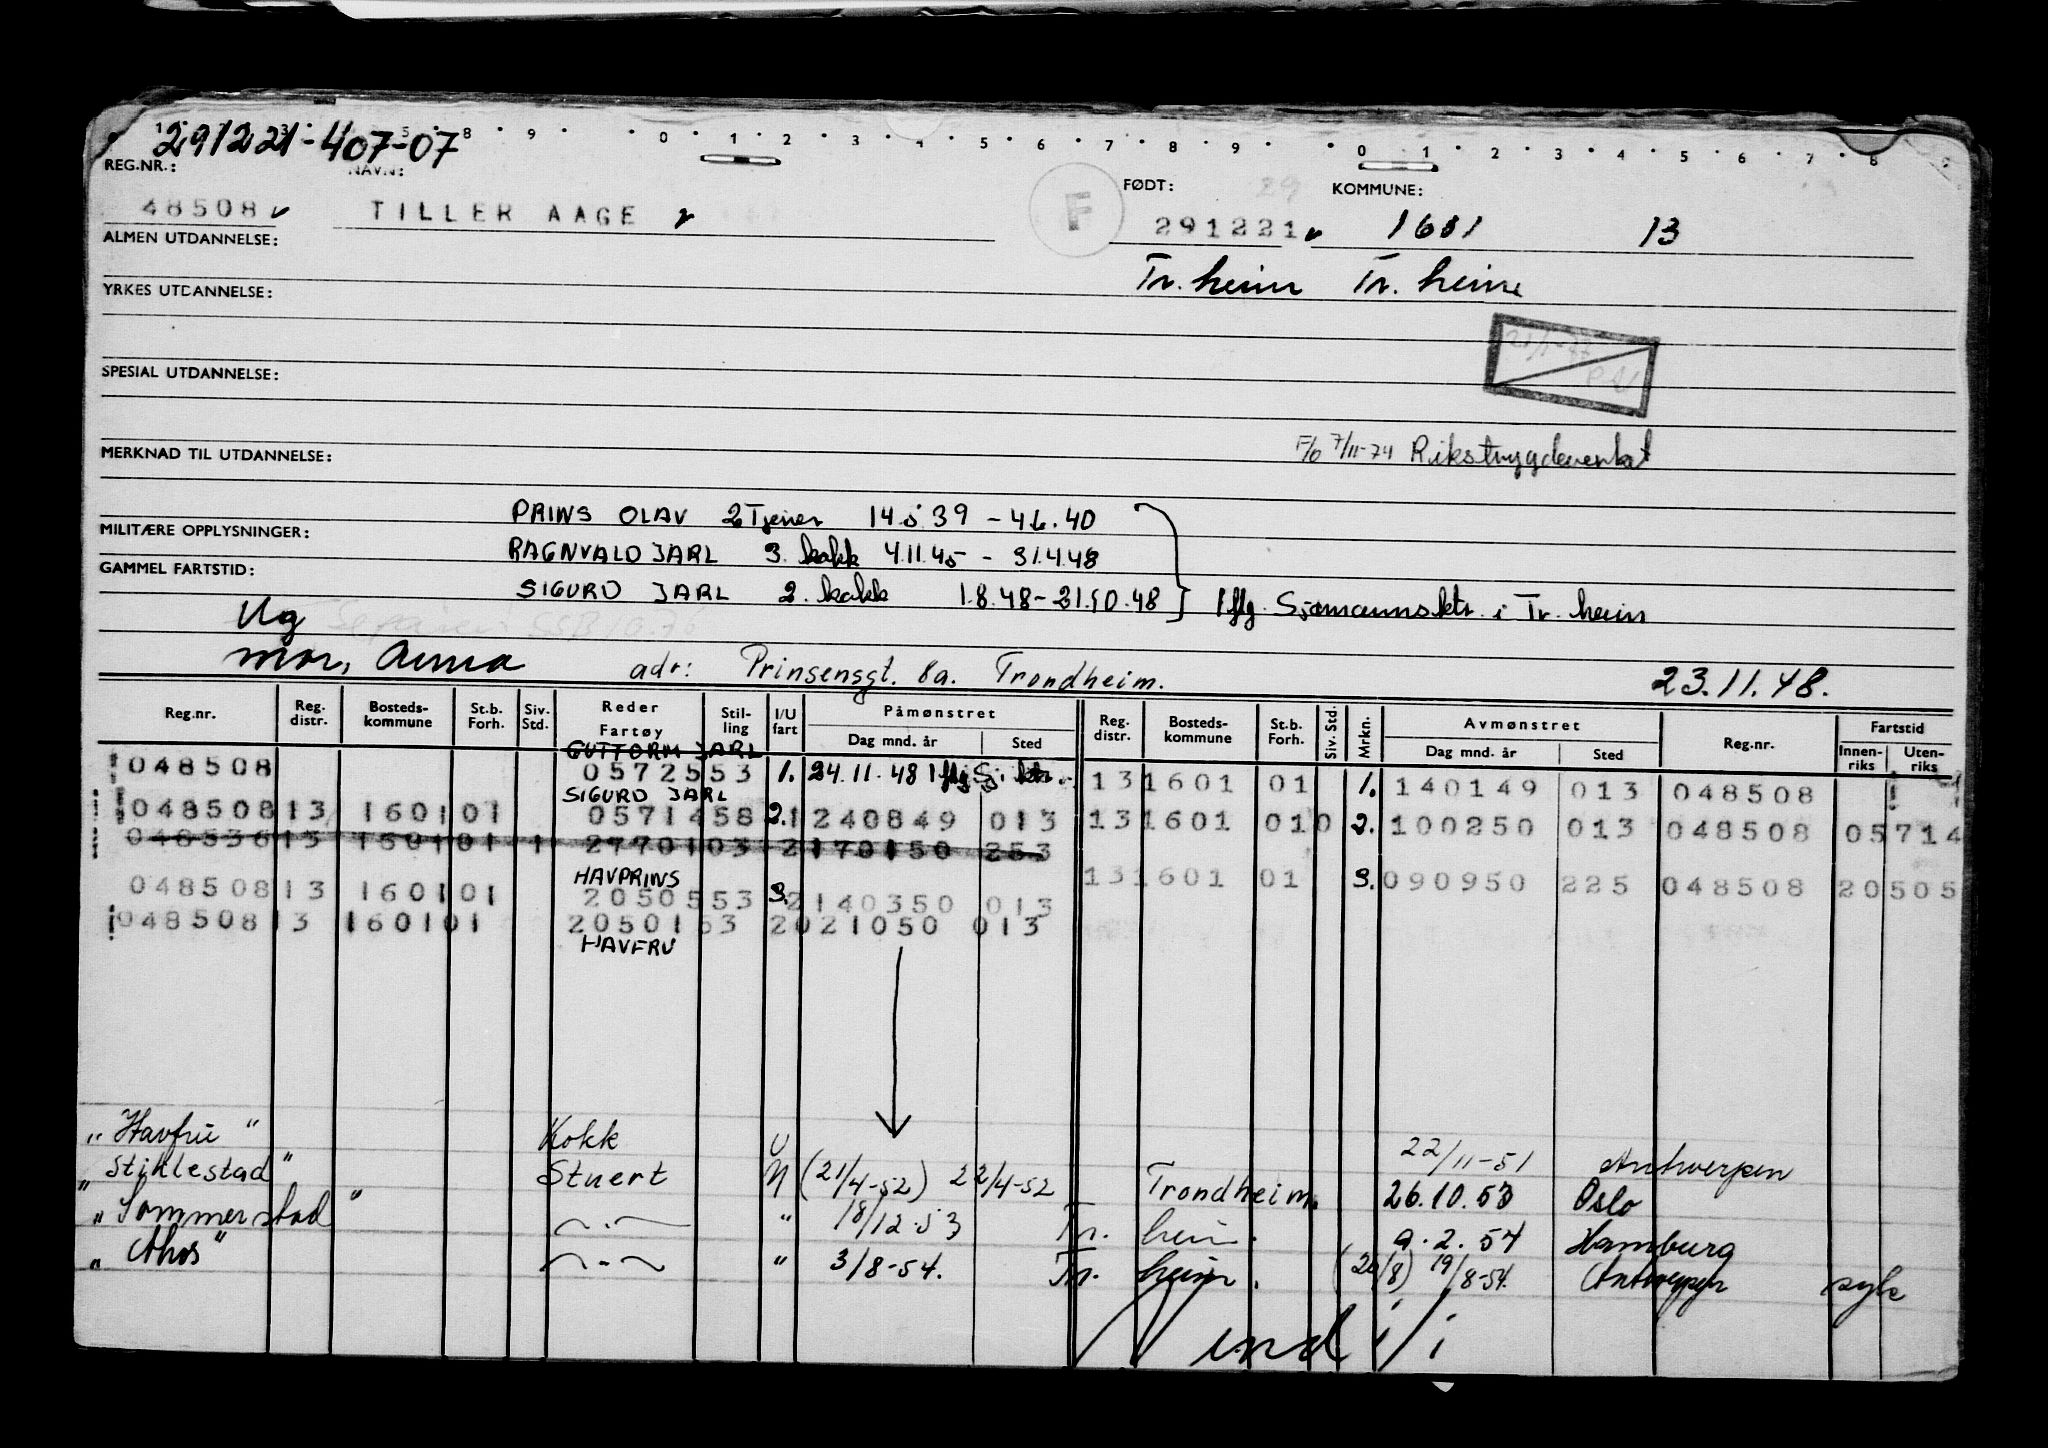 291221-407-07
REG.NR.: NAVN: FØDT: KOMMUNE:
48508 TILLER AAGE F 291221 1601 13
ALMEN UTDANNELSE:
Tr. heim Tr. heim
YRKES UTDANNELSE:
SPESIAL UTDANNELSE:
F/6 7/11-74 Rikstrygdeverket
MERKNAD TIL UTDANNELSE:
PRINS OLAV 2 Tjener 14.5 39 - 4.6.40
MILITÆRE OPPLYSNINGER:
RAGNVALD JARL 3. kokk 4.11.45 - 31.4.48
GAMMEL FARTSTID:
SIGURD JARL 2. kokk 1.8.48-21.10.48 Iflg. Sjømannsktr. i Tr. heim
Ug
mor, Anna adr: Prinsensgt. 8a. Trondheim. 23.11.48.
Reg.nr. Reg. distr. Bosteds-kommune St.b. Forh. Siv. Std. Reder Fartøy Stil-ling I/U fart Påmønstret Dag mnd. år Sted Reg. distr. Bosteds-kommune St.b. Forh. Siv. Std. Mrkn. Avmønstret Dag mnd. år Sted Reg.nr. Fartstid Innen-riks Uten-riks
GUTTORM JARL
048508 0572553 1. 24.11.48 Iflg. Sj. ktr. 13 1601 01 1. 140149 013 048508
SIGURD JARL
048508 13 1601 01 0571458 2. 1 240849 013 13 1601 01 0 2. 100250 013 048508 05714
048536 13 1601 01 1 2770103 2 170150 253
HAVPRINS
048508 13 1601 01 2050553 3. 2 140350 013 13 1601 01 3. 090950 225 048508 20505
048508 13 1601 01 2050153 2 021050 013
HAVFRU
"Havfru" Kokk U 22/11-51 Antwerpen
"Stiklestad" Stuert N (21/4-52) 22/4-52 Trondheim. 26.10.53 Oslo
"Sommerstad" -"- " 18/12.53 Tr. heim. 9.2.54 Hamburg
"Athos" -"- " 3/8-54. Tr. heim. (20/8) 19/8-54. Antwerpen syk